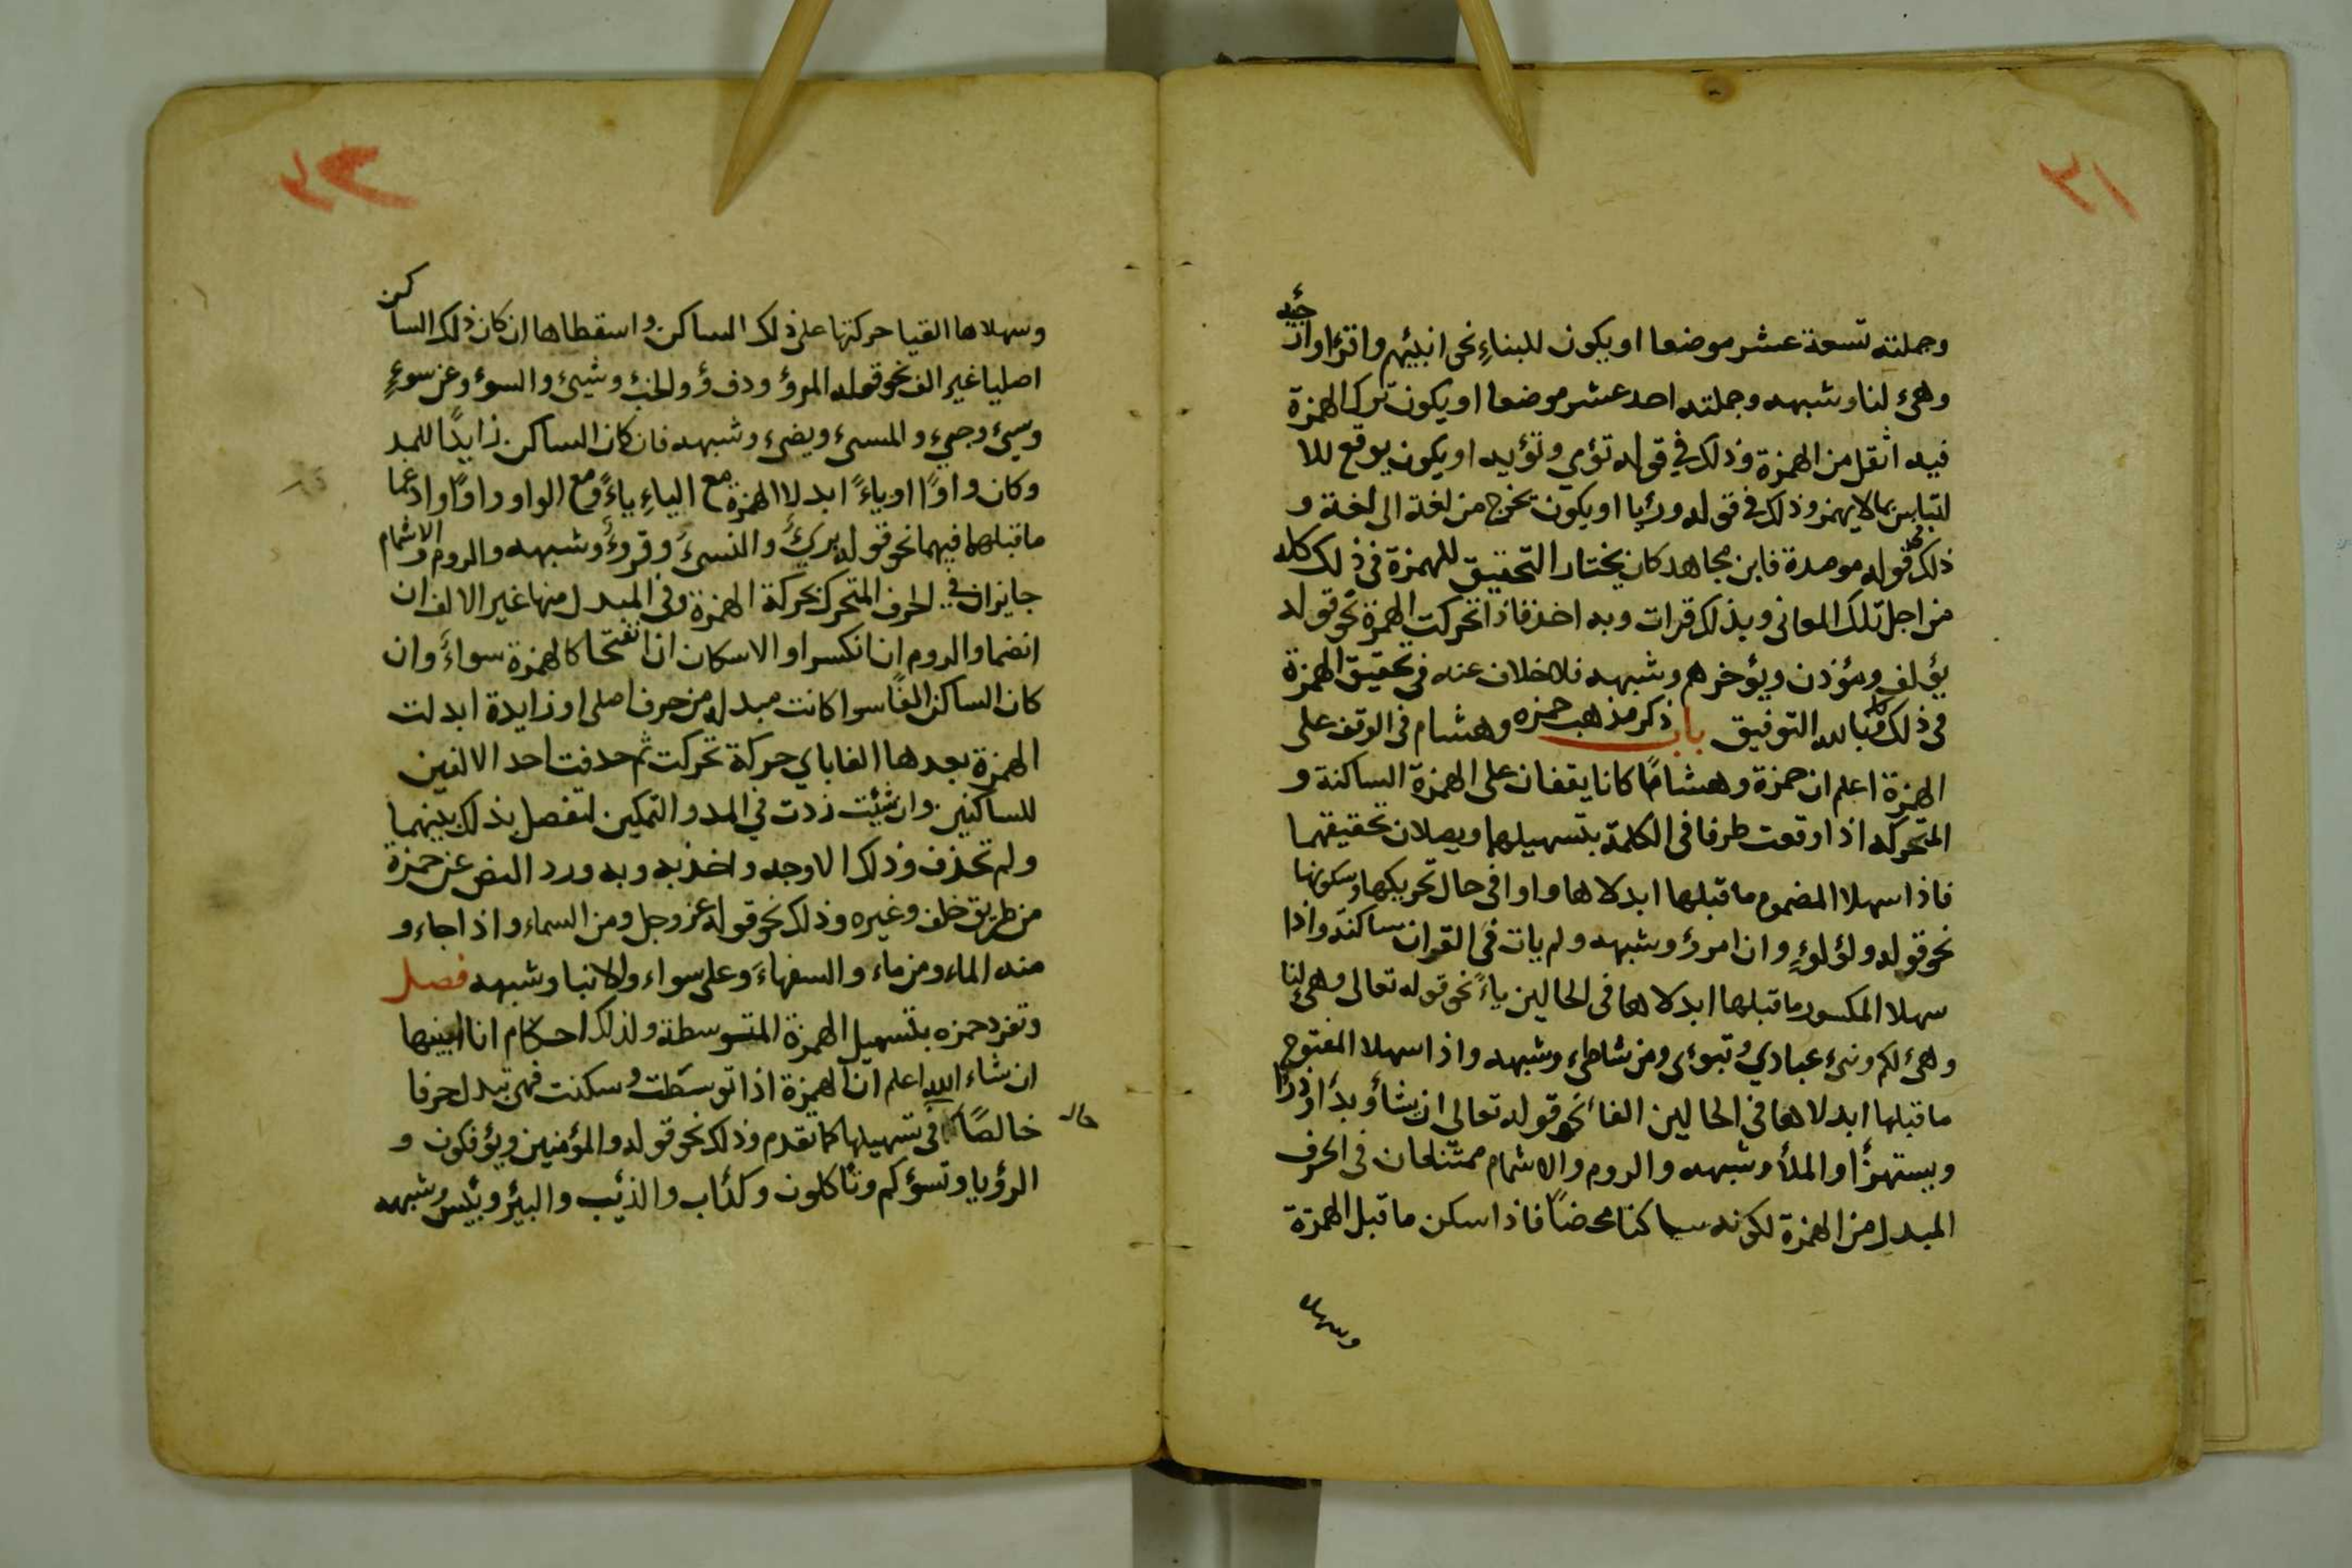 ٣١
وجملته تسعة عشر موضعا او يكون للبناءِ نحو انبيئهم واقرأ وارجئه
وهيء لنا وشبهه وجملته احد عشر موضعا او يكون ترك الهمزة
فيه اثقل من الهمزة وذلك في قوله تؤي وتؤيه او يكون يوقع للا
لتباس بما لا يهمز وذلك في قوله ورئيا او يكون تخرج من لغة الى لغة و
ذلك نحو قوله موصدة فابن مجاهد كان يختار التحقيق للهمزة في ذلك كله
من اجل تلك المعانى وبذلك قرات وبه اخذ فاذا تحركت الهمزة نحو قوله
يؤلف ومؤذن ويؤخرهم وشبهه فلا خلاف عنه في تحقيق الهمزة
في ذلك كله وبالله التوفيق باب ذكر مذهب حمزه وهشام فى الوقف على
الهمزة اعلم ان حمزة وهشامًا كانا يقفان على الهمزة الساكنة و
المتحركه اذا وقعت طرفا فى الكلمة بتسهيلها ويصلان بتحقيقهما
فاذا سهلا المضموم ما قبلها ابدلاها واوا فى حال تحريكها وسكونها
نحو قوله ولؤلوءٍ وان امرؤ وشبهه ولم يات فى القران ساكنة واذا
سهلا المكسور ما قبلها ابدلاها فى الحالين ياءً نحو قوله تعالى وهيء لنا
وهيء لكم ونبيء عبادي وتبوئ ومن شاطىء وشبهه واذا سهلا المفتوح
ما قبلها ابدلاها فى الحالين الفا نحو قوله تعالى ان يشأ وبدأ وذرأ
ويستهزأ والملأ وشبهه والروم والاشمام ممتنعان فى الحرف
المبدل من الهمزة لكونه ساكنا محضًا فاذا سكن ما قبل الهمزة
وسهلا
٣٢
وسهلاها القيا حركتها على ذلك الساكن واسقطاها ان كان ذلك الساكن
اصليا غير الف نحو قوله المرؤ ودفؤ والخبْ وشيئ والسوؤ وعن سوءٍ
وسيئ وجيء والمسيء ويضيء وشبهه فان كان الساكن زايدًا للمد
وكان واوًا او ياءً ابدلا الهمزة مع الياءِ ياءً ومع الواو واوًا وادغما
ما قبلهما فيهما نحو قوله بريئَ والنسيءَ وقروءٍ وشبهه والروم والاشمام
جايزان في الحرف المتحرك بحركة الهمزة وفى المبدل منها غير الالف ان
انضما والروم ان انكسرا والاسكان ان انفتحا كالهمزة سواءً وان
كان الساكن الفًا سوا كانت مبدله من حرف اصلى او زايدة ابدلت
الهمزة بعدها الفا باي حركة تحركت ثم حذفت احد الالفين
للساكنين وان شئت زدت في المد والتمكين لتفصل بذلك بينهما
ولم تحذف وذلك الاوجه واخذ به وبه ورد النص عن حمزة
من طريق خلف وغيره وذلك نحو قوله عز وجل ومن السماء واذا جاء و
منه الماء ومن ماء والسفهاءَ وعلى سواء والانبا وشبهه فصل
وتفرد حمزه بتسهيل الهمزة المتوسطة ولذلك احكام انا ابينها
ان شاء الله اعلم ان الهمزة اذا توسَّطت وسكنت فهى تبدل حرفا
خالصًا فى تسهيلها كما تقدم وذلك نحو قوله والمؤمنين ويؤفكون و
الرؤيا وتسؤكم وتأكلون وكدأب والذئب والبئر وبئس وشبهه
حال